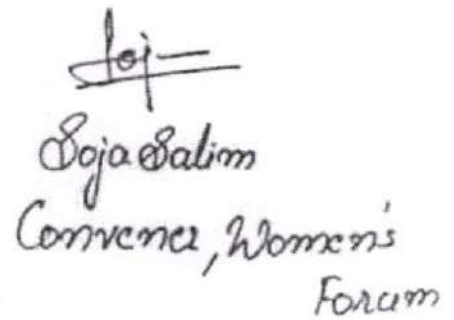 Soja
Soja Salim
Convener, Women's
Forum